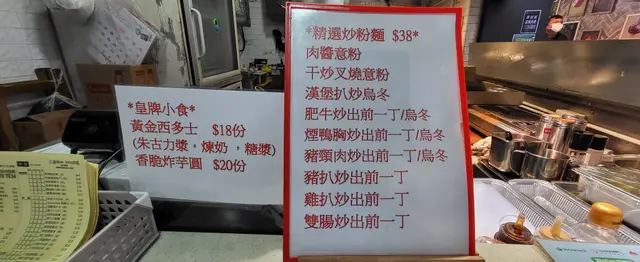 *皇牌小食*
黃金西多士 $18份
(朱古力漿，煉奶，糖漿)
香脆炸芋圓 $20份
*精選炒粉麵 $38*
肉醬意粉
干炒叉燒意粉
漢堡扒炒烏冬
肥牛炒出前一丁/烏冬
煙鴨胸炒出前一丁/烏冬
豬頸肉炒出前一丁/烏冬
豬扒炒出前一丁
雞扒炒出前一丁
雙腸炒出前一丁